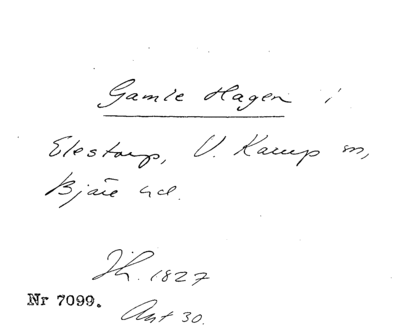 Gamle Hagen i
Elestorp, V. Karup sn,
Bjäre hd.
Jh. 1827
Nr 7099.
Ant 30.